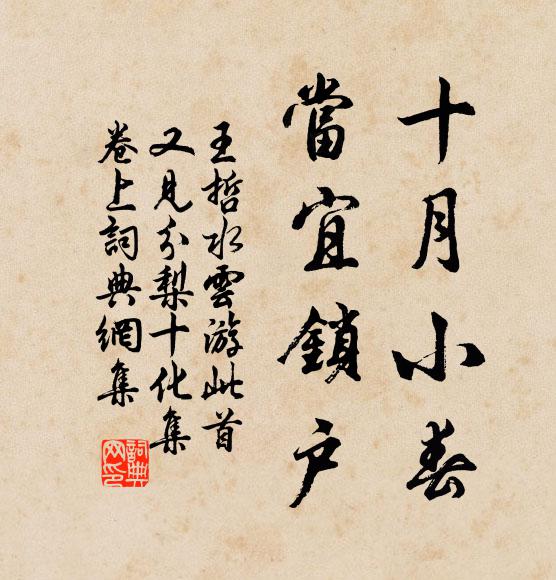 十月小春
當宜鎖户
王哲水雲游此首
又見分梨十化集
卷上詞典網集
詞典
网印